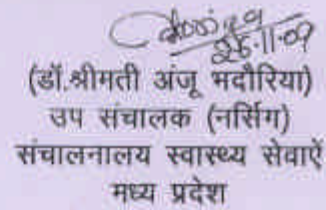 26.11.09
(डॉ.श्रीमती अंजू भदौरिया)
उप संचालक (नर्सिंग)
संचालनालय स्वास्थ्य सेवाऐं
मध्य प्रदेश